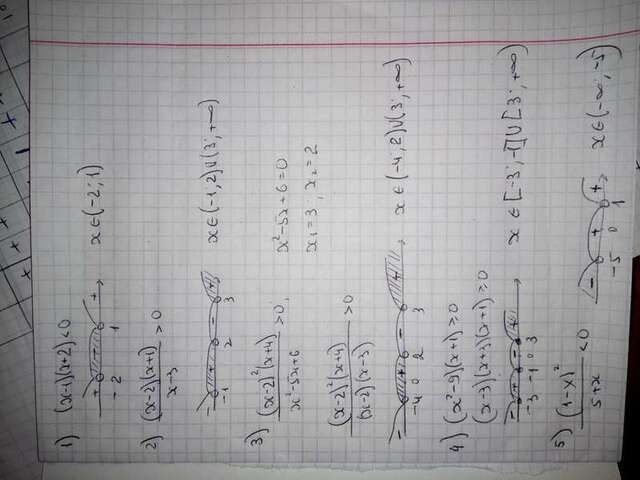 1) (x-1)(x+2)<0
+ - +
-2 1
x∈(-2; 1)
2) (x-2)(x+1)/x-3 >0
- + - +
-1 2 3
x∈(-1; 2)∪(3; +∞)
3) (x-2)²(x+4)/x²-5x+6 >0,
x²-5x+6=0
x₁=3; x₂=2
(x-2)²(x+4)/(x-2)(x-3) >0
- + - +
-4 0 2 3
x∈(-4; 2)∪(3; +∞)
4) (x²-9)(x+1)≥0
(x-3)(x+3)(x+1)≥0
- + - +
-3 -1 0 3
x∈[-3; -1]∪[3; +∞)
5) (1-x)²/5+x <0
- + +
-5 0 1
x∈(-∞; -5)